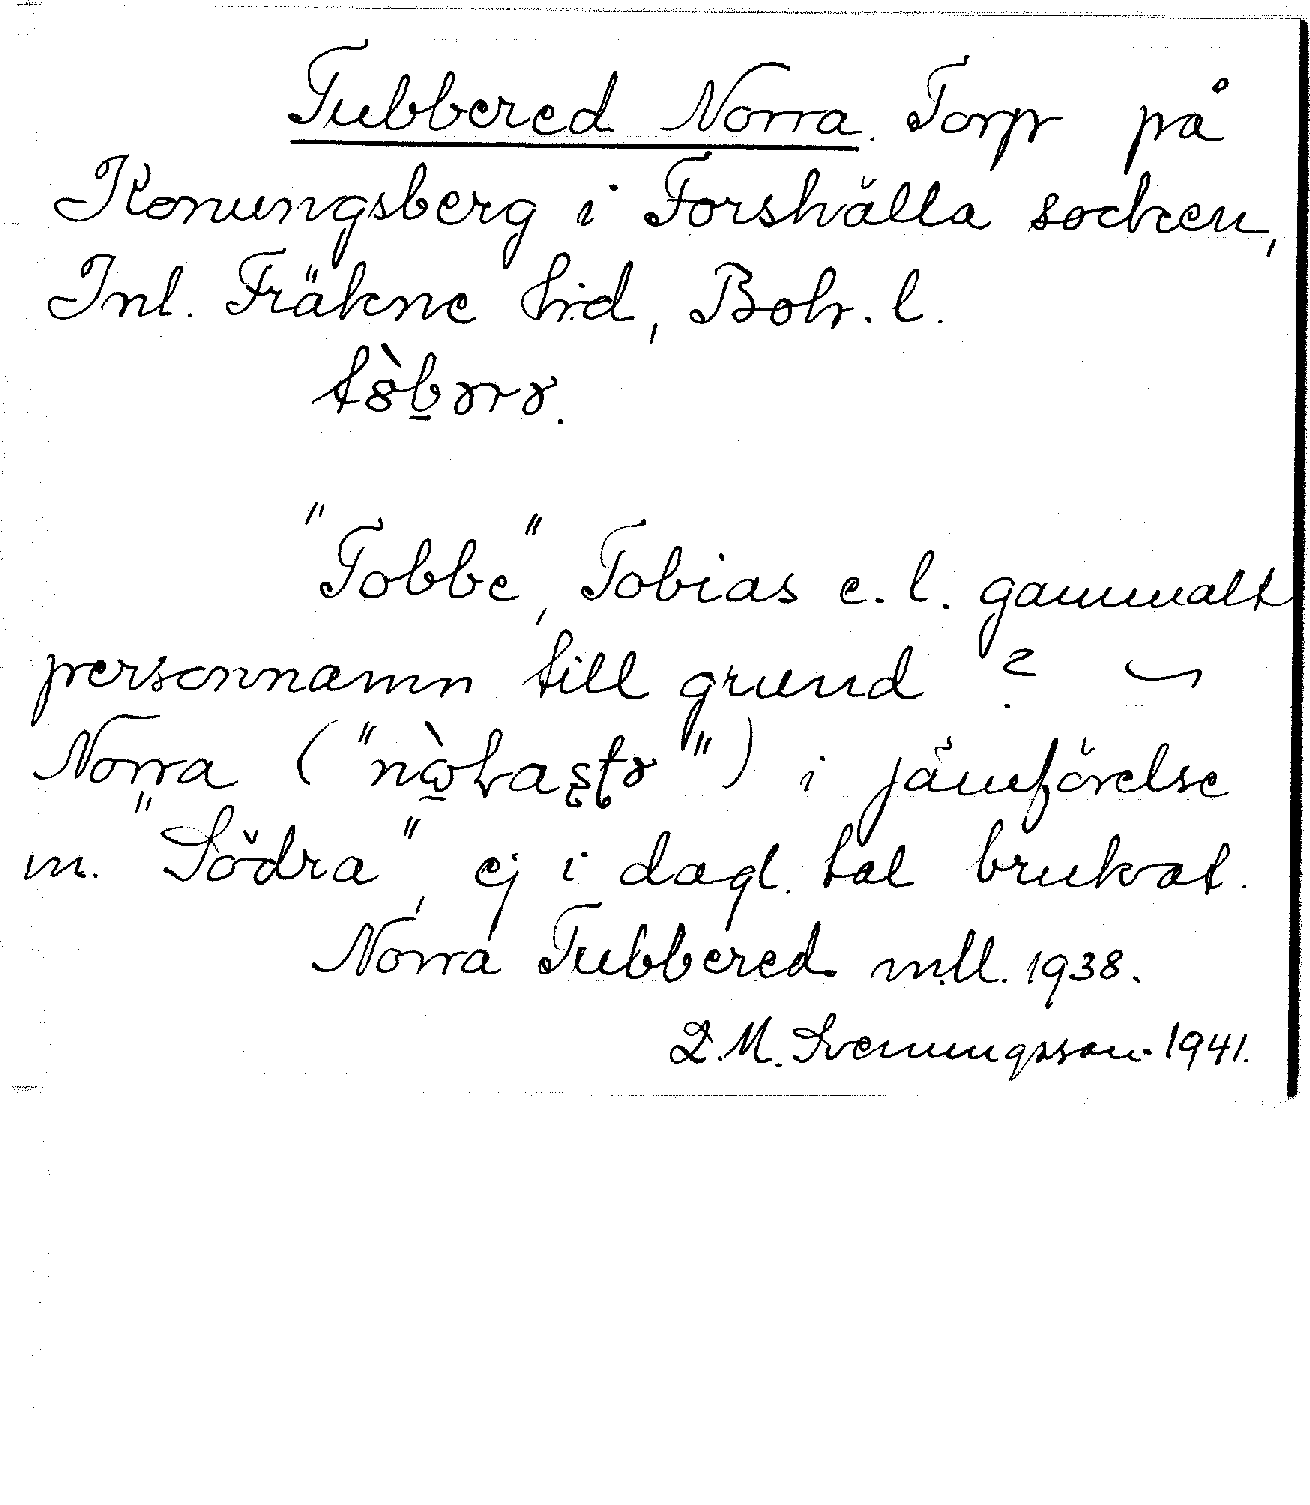 Tubbered Norra. Torp på
Konungsberg i Forshälla socken,
Inl. Fräkne hd, Boh. l.
tȣ̀b̲ərə.
"Tobbe", Tobias e. l. gammalt
personnamn till grund? —
Norra ("nɷ̀haʂʈə") i jämförelse
m. "Södra", ej i dagl. tal brukat.
Norra Tubbered m.ll. 1938.
D. M. Svenungsson. 1941.